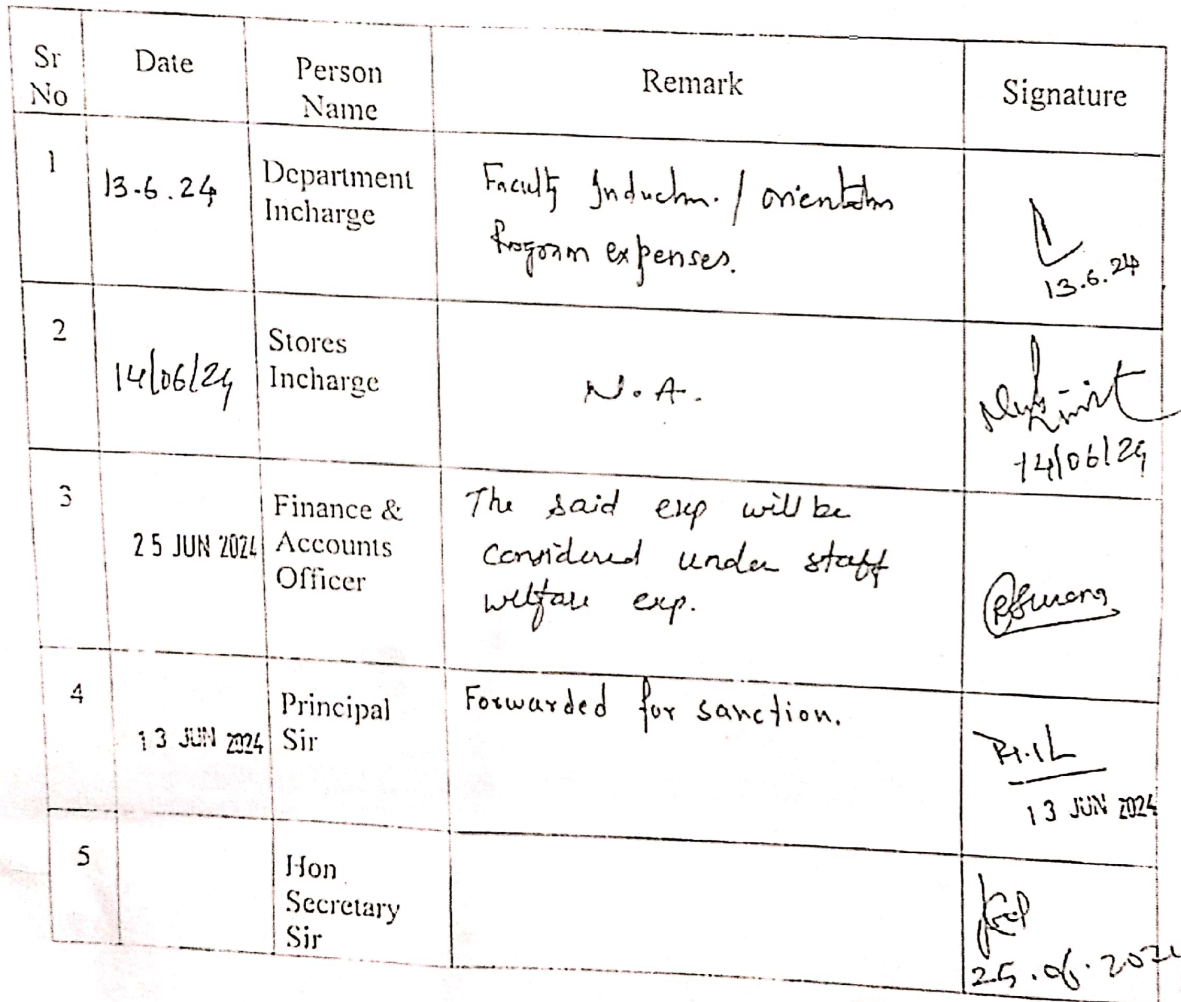 Sr No | Date | Person Name | Remark | Signature
1 | 13.6.24 | Department Incharge | Faculty Inductn. / orientatn
Program expenses. | 13.6.24
2 | 14/06/24 | Stores Incharge | N.A. | 14/06/24
3 | 25 JUN 2024 | Finance & Accounts Officer | The said exp will be
considered under staff
welfare exp.
4 | 13 JUN 2024 | Principal Sir | Forwarded for sanction. | 13 JUN 2024
5 | Hon Secretary Sir | 25.06.202